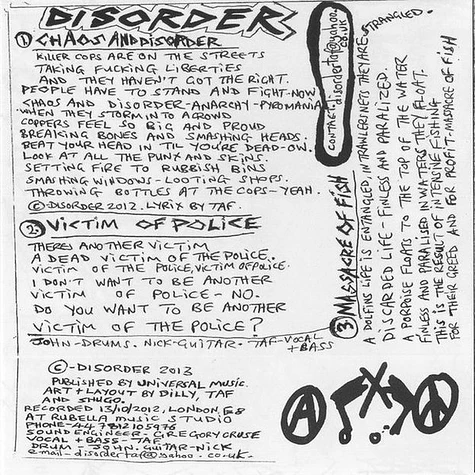 DISORDER
1. CHAOS AND DISORDER
KILLER COPS ARE ON THE STREETS
TAKING FUCKING LIBERTIES
AND THEY HAVEN'T GOT THE RIGHT.
PEOPLE HAVE TO STAND AND FIGHT-NOW
CHAOS AND DISORDER-ANARCHY-PYROMANIA
WHEN THEY STORM INTO A CROWD
COPPERS FEEL SO BIG AND PROUD
BREAKING BONES AND SMASHING HEADS.
BEAT YOUR HEAD IN TIL YOU'RE DEAD-OW.
LOOK AT ALL THE PUNX AND SKINS.
SETTING FIRE TO RUBBISH BINS
SMASHING WINDOWS-LOOTING SHOPS
THROWING BOTTLES AT THE COPS-YEAH.
© DISORDER 2012. LYRIX BY TAF.
2. VICTIM OF POLICE
THERES ANOTHER VICTIM
A DEAD VICTIM OF THE POLICE.
VICTIM OF THE POLICE, VICTIM OF POLICE.
I DON'T WANT TO BE ANOTHER
VICTIM OF POLICE - NO.
DO YOU WANT TO BE ANOTHER
VICTIM OF THE POLICE?
JOHN-DRUMS. NICK-GUITAR. TAF-VOCAL
+ BASS
©-DISORDER 2013
PUBLISHED BY UNIVERSAL MUSIC.
ART + LAYOUT BY DILLY, TAF
AND SHUGO.
RECORDED 13/10/2012, LONDON, E8
AT RUBELLA MUSIC STUDIO
PHONE-44 7812105976
SOUND ENGINEER-GREGORY CRUSE
VOCAL + BASS-TAF
DRUM-JOHN. GUITAR-NICK
e-mail-disordertaf@yahoo.co.uk.
CONTACT: disordertaf@yahoo.
co.uk
3. MASSACRE OF FISH
A DOLFINS LIFE IS ENTANGLED, IN TRAWLERS NETS THEY ARE STRANGLED.
DISCARDED LIFE - FINLESS AND PARALIZED.
A PORPOICE FLOATS TO THE TOP OF THE WATER
FINLESS AND PARALISED IN WATERS THEY FLOAT.
THIS IS THE RESULT OF INTENSIVE FISHING
FOR THEIR GREED AND FOR PROFIT-MASSACRE OF FISH